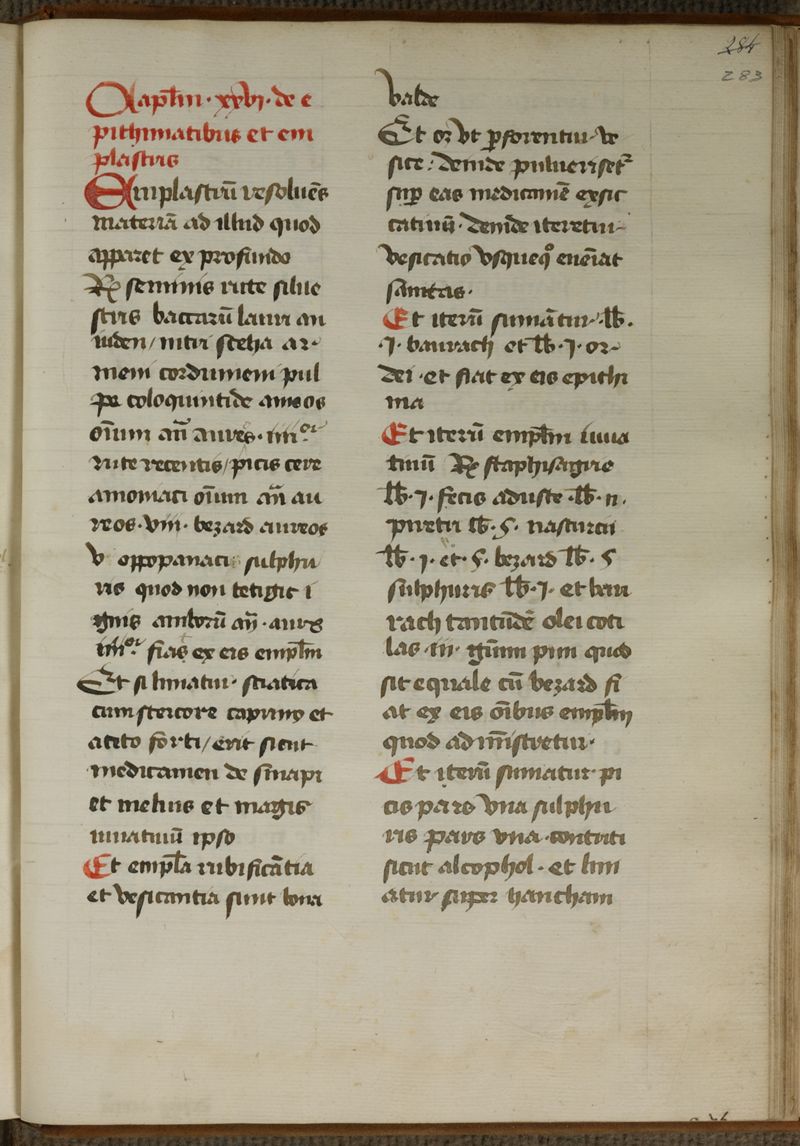 284
283
Capťlm · xxvj · de e
pithimatibus et em
plastris
Emplastrū resoluēs
materiā ad illud quod
apparet ex profundo
℞ seminis rute silue
stris baccarū lauri an
iuden / nitri stecha ar-
meni cordumeni pul
pe coloquintide ameos
oīum añ aureos · iiiior
rute recentis / picis cere
amoniaci oīum añ au
reos · viii · bezard aureos
v oppopanaci sulphu
ris quod non tetigit i
gnis amborū añ · aures
iiiior fiat ex eis emplm
Et si liniatur · sciatica
cum stercore caprino et
aceto forti / erit sicut
medicamen de sinapi
et melius et magis
iuuatiuū ipso
Et empla rubificātia
et vesicantia sunt bona
valde
Et or vt pforentur ve
sice : deinde pulueriset
sup eas medicamē exsic
catiuū · deinde iteretur
vesicatio vsqueqo eueniat
sanitas ·
Et iterū sumātur · lb ·
· j · baurach et lb · j · or-
dei · et fiat ex eis epithi
ma
Et iterū emplm iuua
tiuū ℞ staphisagrie
lb · j · fecis aduste · lb · ii ·
piretri lb · ς · nasturcii
lb · j · et · ς · bezard lb · ς
sulphuris lb · j · et bau
rach tantūdē olei coti
las · iii · gūmi pini quod
sit equale cū bezard fi
at ex eis oībus emplm
quod admīstretur ·
Et iterū sumatur pi
cis pars vna sulphu
ris pars vna · contriti
sicut alcophol · et lini
atur super hancham